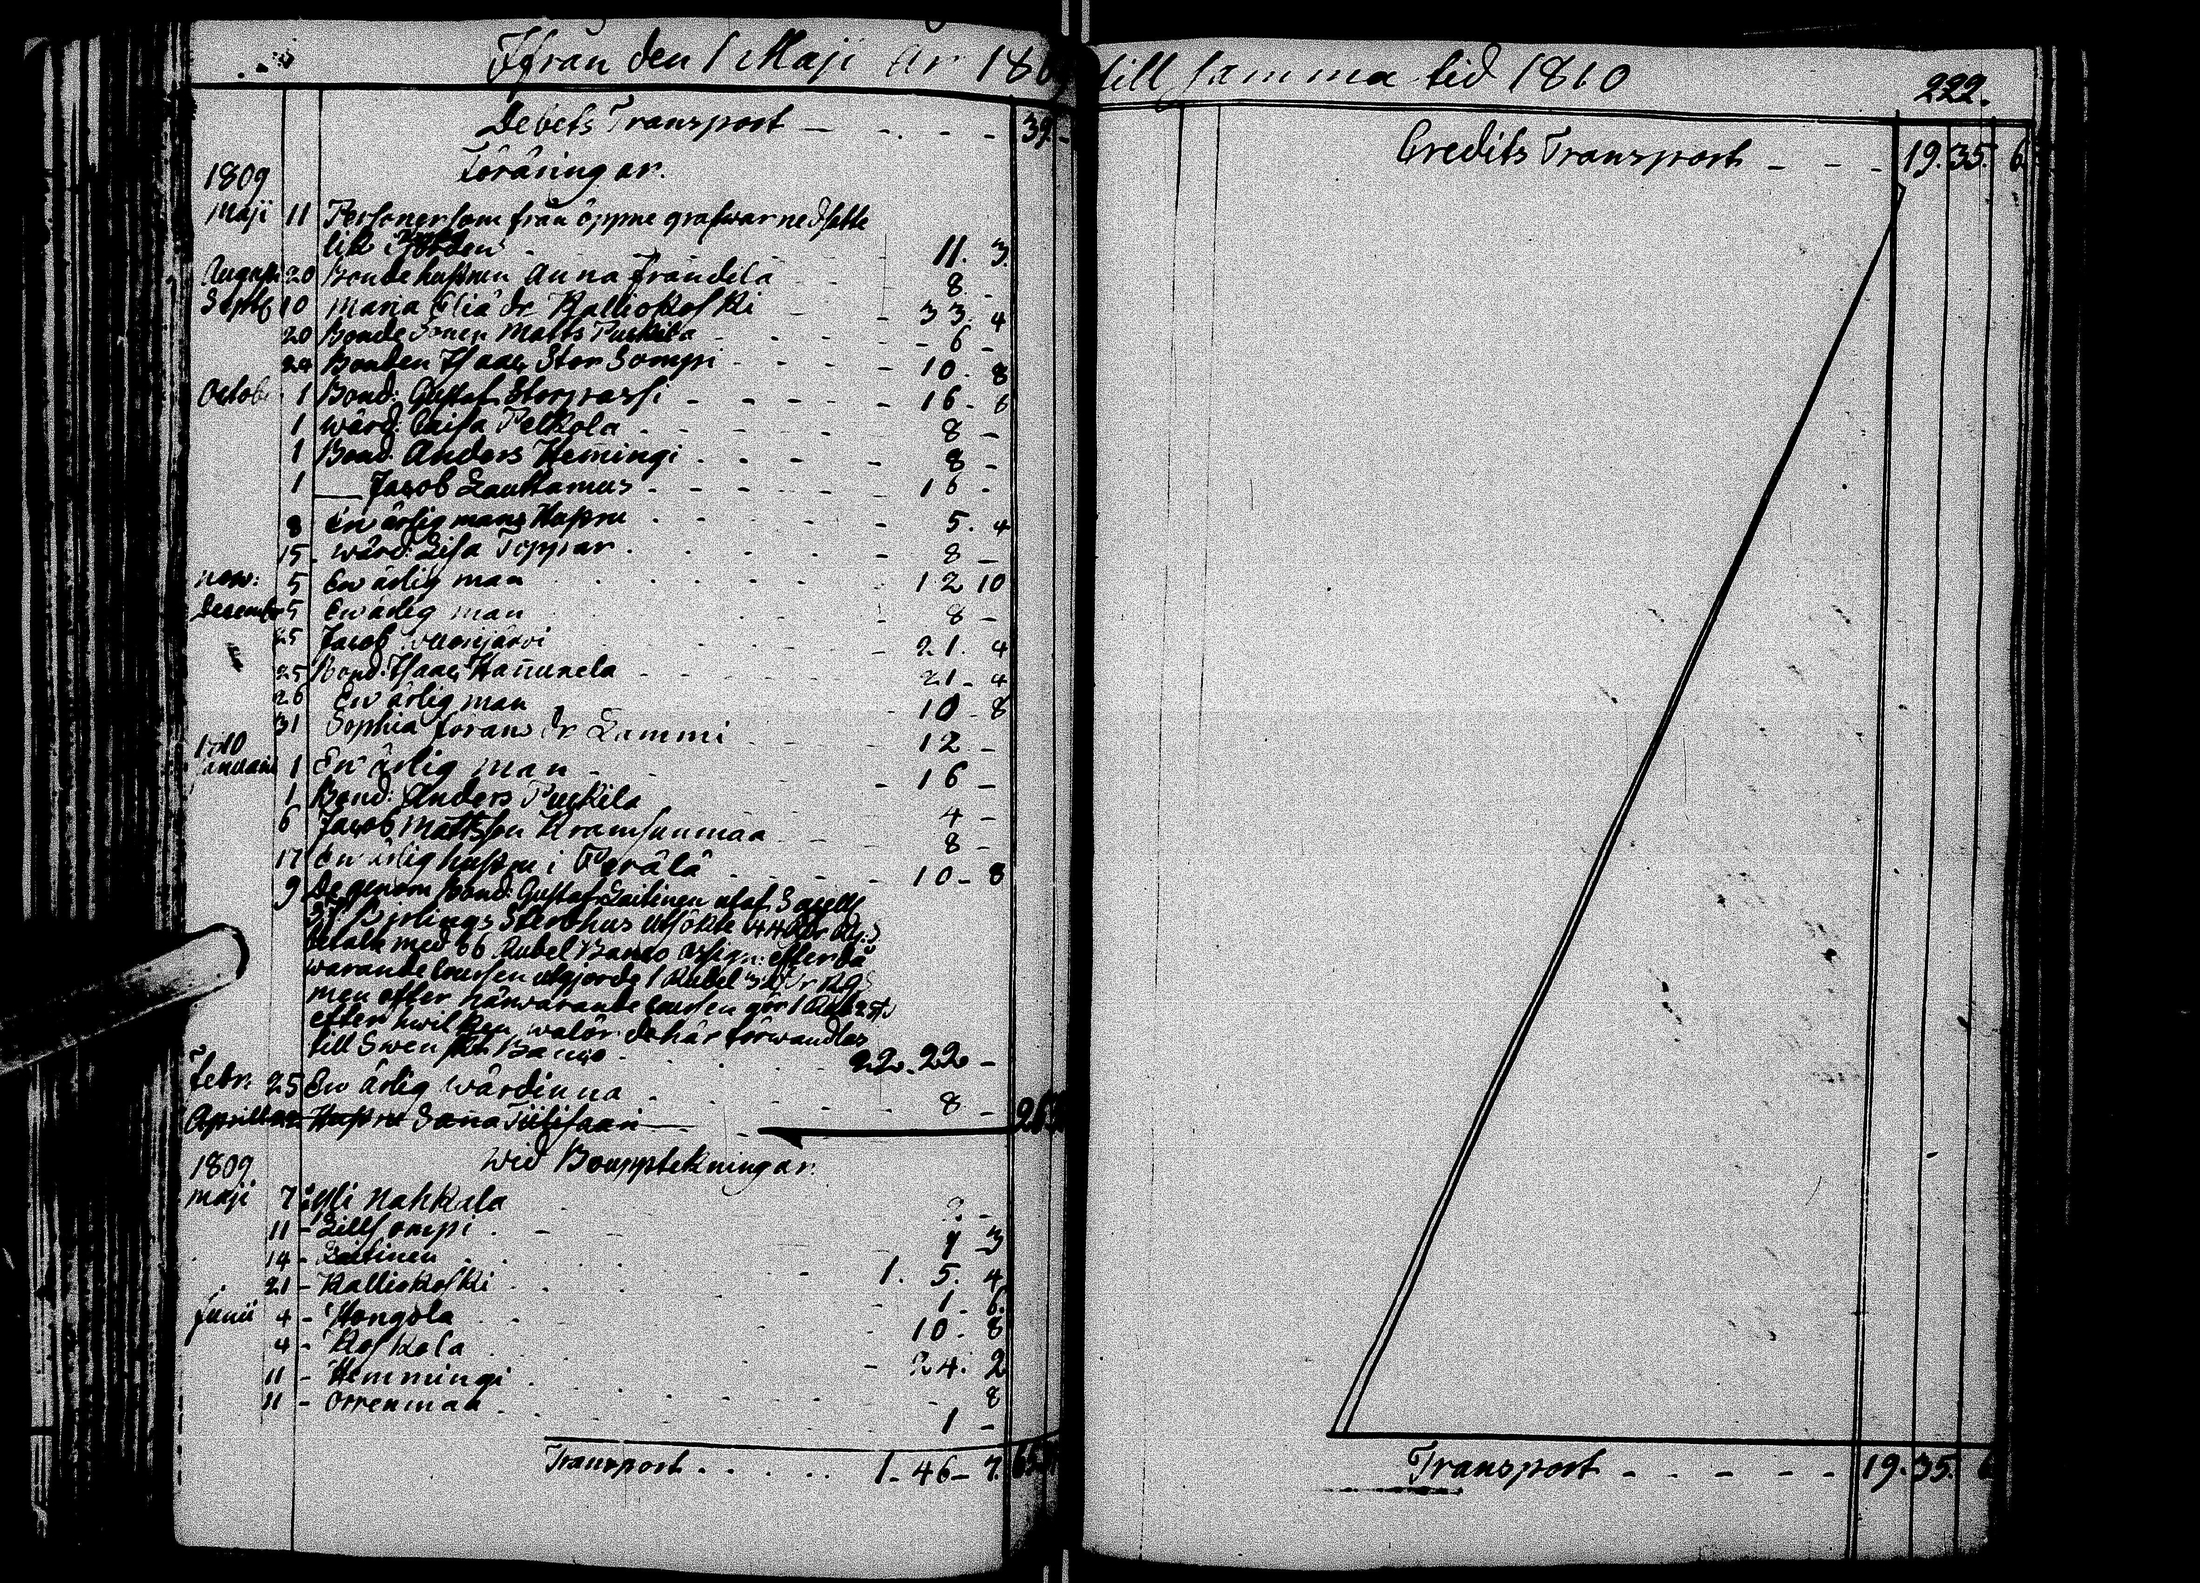 Ifrån den 1 Maji År 1809 till samma tid 1810
222.
Debets Transport - - - - 39 -
Föräringar.
1809
Maji 11 Personer som från öppne grafwar nedsatte
lik i Jorden 11. 3.
August 20 Bonde hustrun Anna Frändilä 8 -
Septb 10 Maria Eliä dr Kalliokoski - 33. 4
20 Bonde Sonen Matts Puskila - 6 -
24 Bonden Isaac Stor Sompi - 10. 8
Octob. 1 Bond: Gustaf Storpassi - 16 - 6
1 wärd: Caisa Pelkola 8 -
1 Bond. Anders Hemingi 8 -
1 — Jacob Lauttamus 16 -
8 En ärlig mans Hustru 5. 4
15. wärd: Lisa Toppar 8 -
nov: 5 En ärlig man 12 10
December 5 En ärlig man 8 -
25 Jacob 21. 4
25 Bond. Isaac Hannunela 21 - 4
26 En ärlig man 10 - 8
31 Sophia Görans dr Lammi 12 -
1810
Januari 1 En ärlig man 16 -
1 Bond: Anders Puskila 4 -
6 Jacob Mattsson Kramsunmaa 8 -
17 En ärlig hustru i Perälä 10 - 8
9 De genom Bond: Gustaf Laitinen utaf
Sterbhus utsökte 44 Rdr Rg:s
betalt med 66 Rubel Banco Assign: efter då
warande coursen utgjorde 1 Rubel 32 Rg:s
men efter närwarande coursen gör 1 Rub
efter hwilken walör de här förwandlas
till Swenskt Banco 22. 22 -
Febr: 25 En ärlig wärdinna 8 -
Aprill Hustru Sanna Tiitisaari
1809 Wid Bouppteckningar.
maji 7 i Yli Nahkala -
11 - Lillsompi - 3
14 - Laitinen 1. 5. 4
21 - Kalliokoski 1 - 6.
Junii 4 - Hongola 10. 8
4 - Koskela 24. 2
11 - Hemmingi - 8
11 - Orrenmaa 1 -
Transport . . . . . 1 - 46 - 7.
Credits Transport - - - 19. 35. 6
Transport - - - - - 19. 35. 6